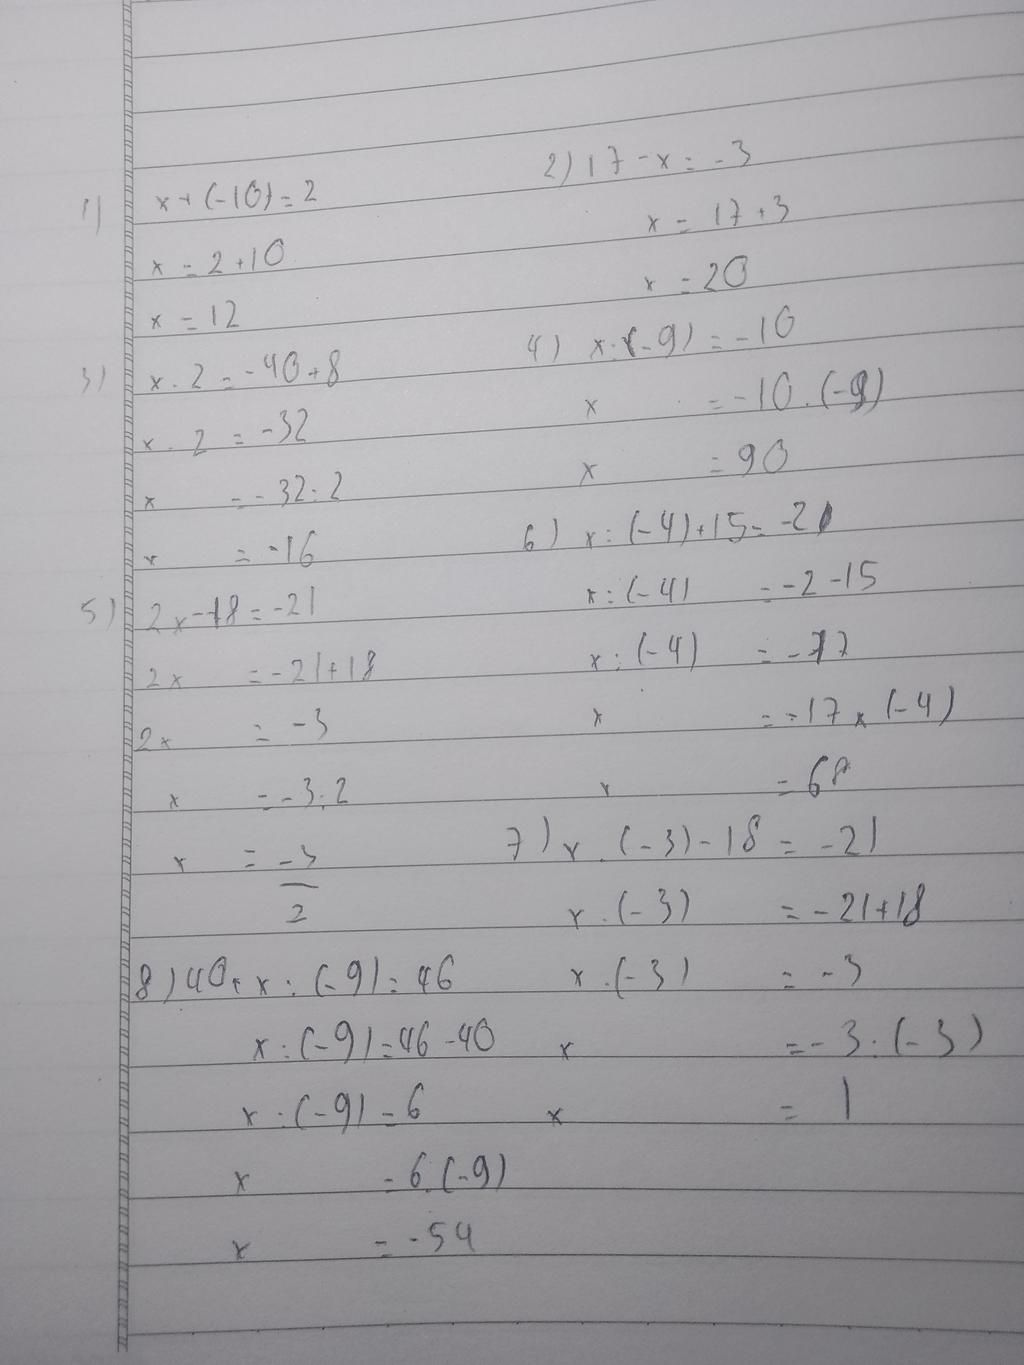 1) x + (-10) = 2
x = 2 + 10
x = 12
2) 17 - x = -3
x = 17 + 3
x = 20
3) x . 2 = -40 + 8
x . 2 = -32
x = -32 : 2
x = -16
4) x : (-9) = -10
x = -10 . (-9)
x = 90
5) 2x - 18 = -21
2x = -21 + 18
2x = -3
x = -3 : 2
x = -3/2
6) x : (-4) + 15 = -2
x : (-4) = -2 - 15
x : (-4) = -17
x = -17 x (-4)
x = 68
7) x . (-3) - 18 = -21
x . (-3) = -21 + 18
x . (-3) = -3
x = -3 : (-3)
x = 1
8) 40 + x : (-9) = 46
x : (-9) = 46 - 40
x : (-9) = 6
x = 6 . (-9)
x = -54